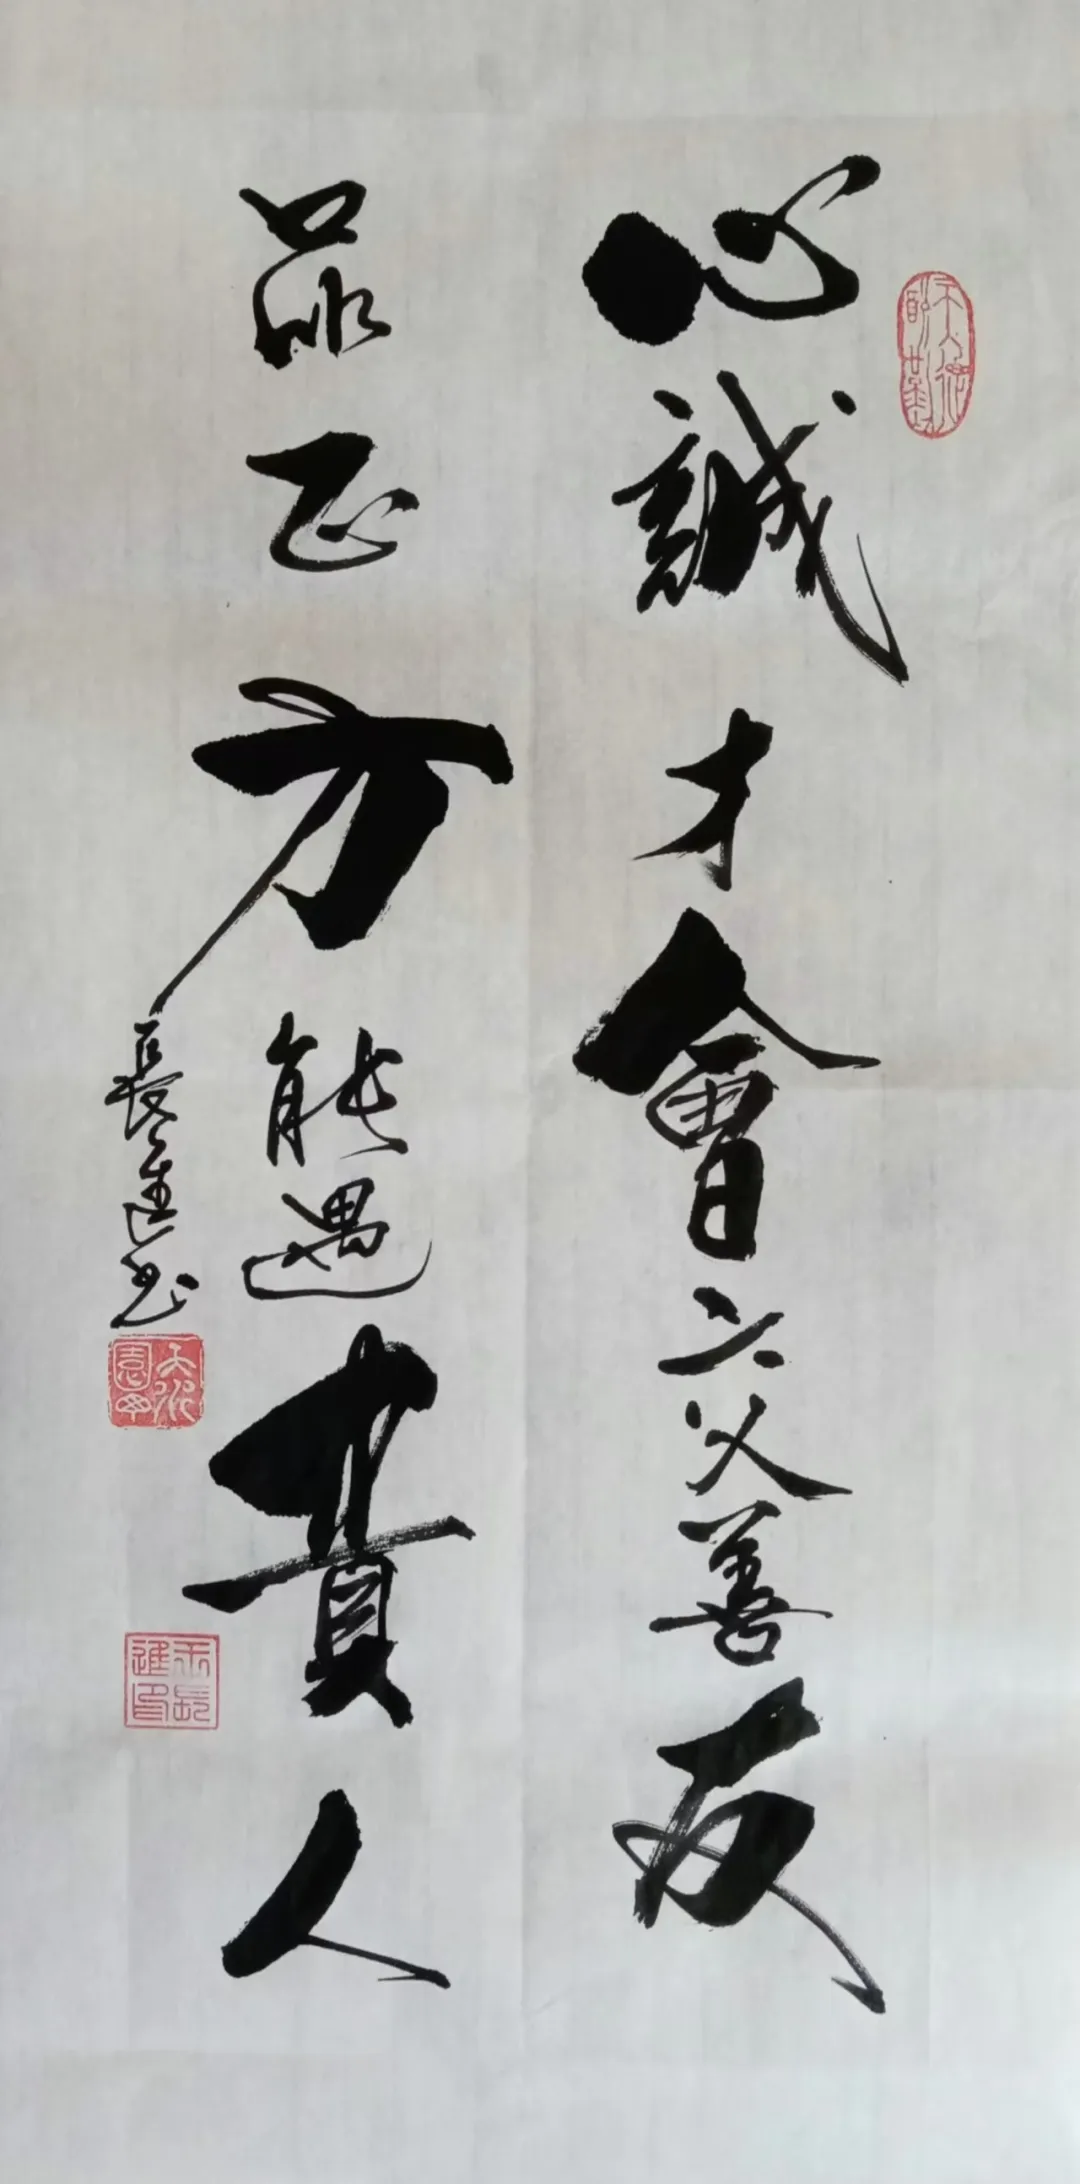 心誠才會交善友
品正方能遇貴人
長進书